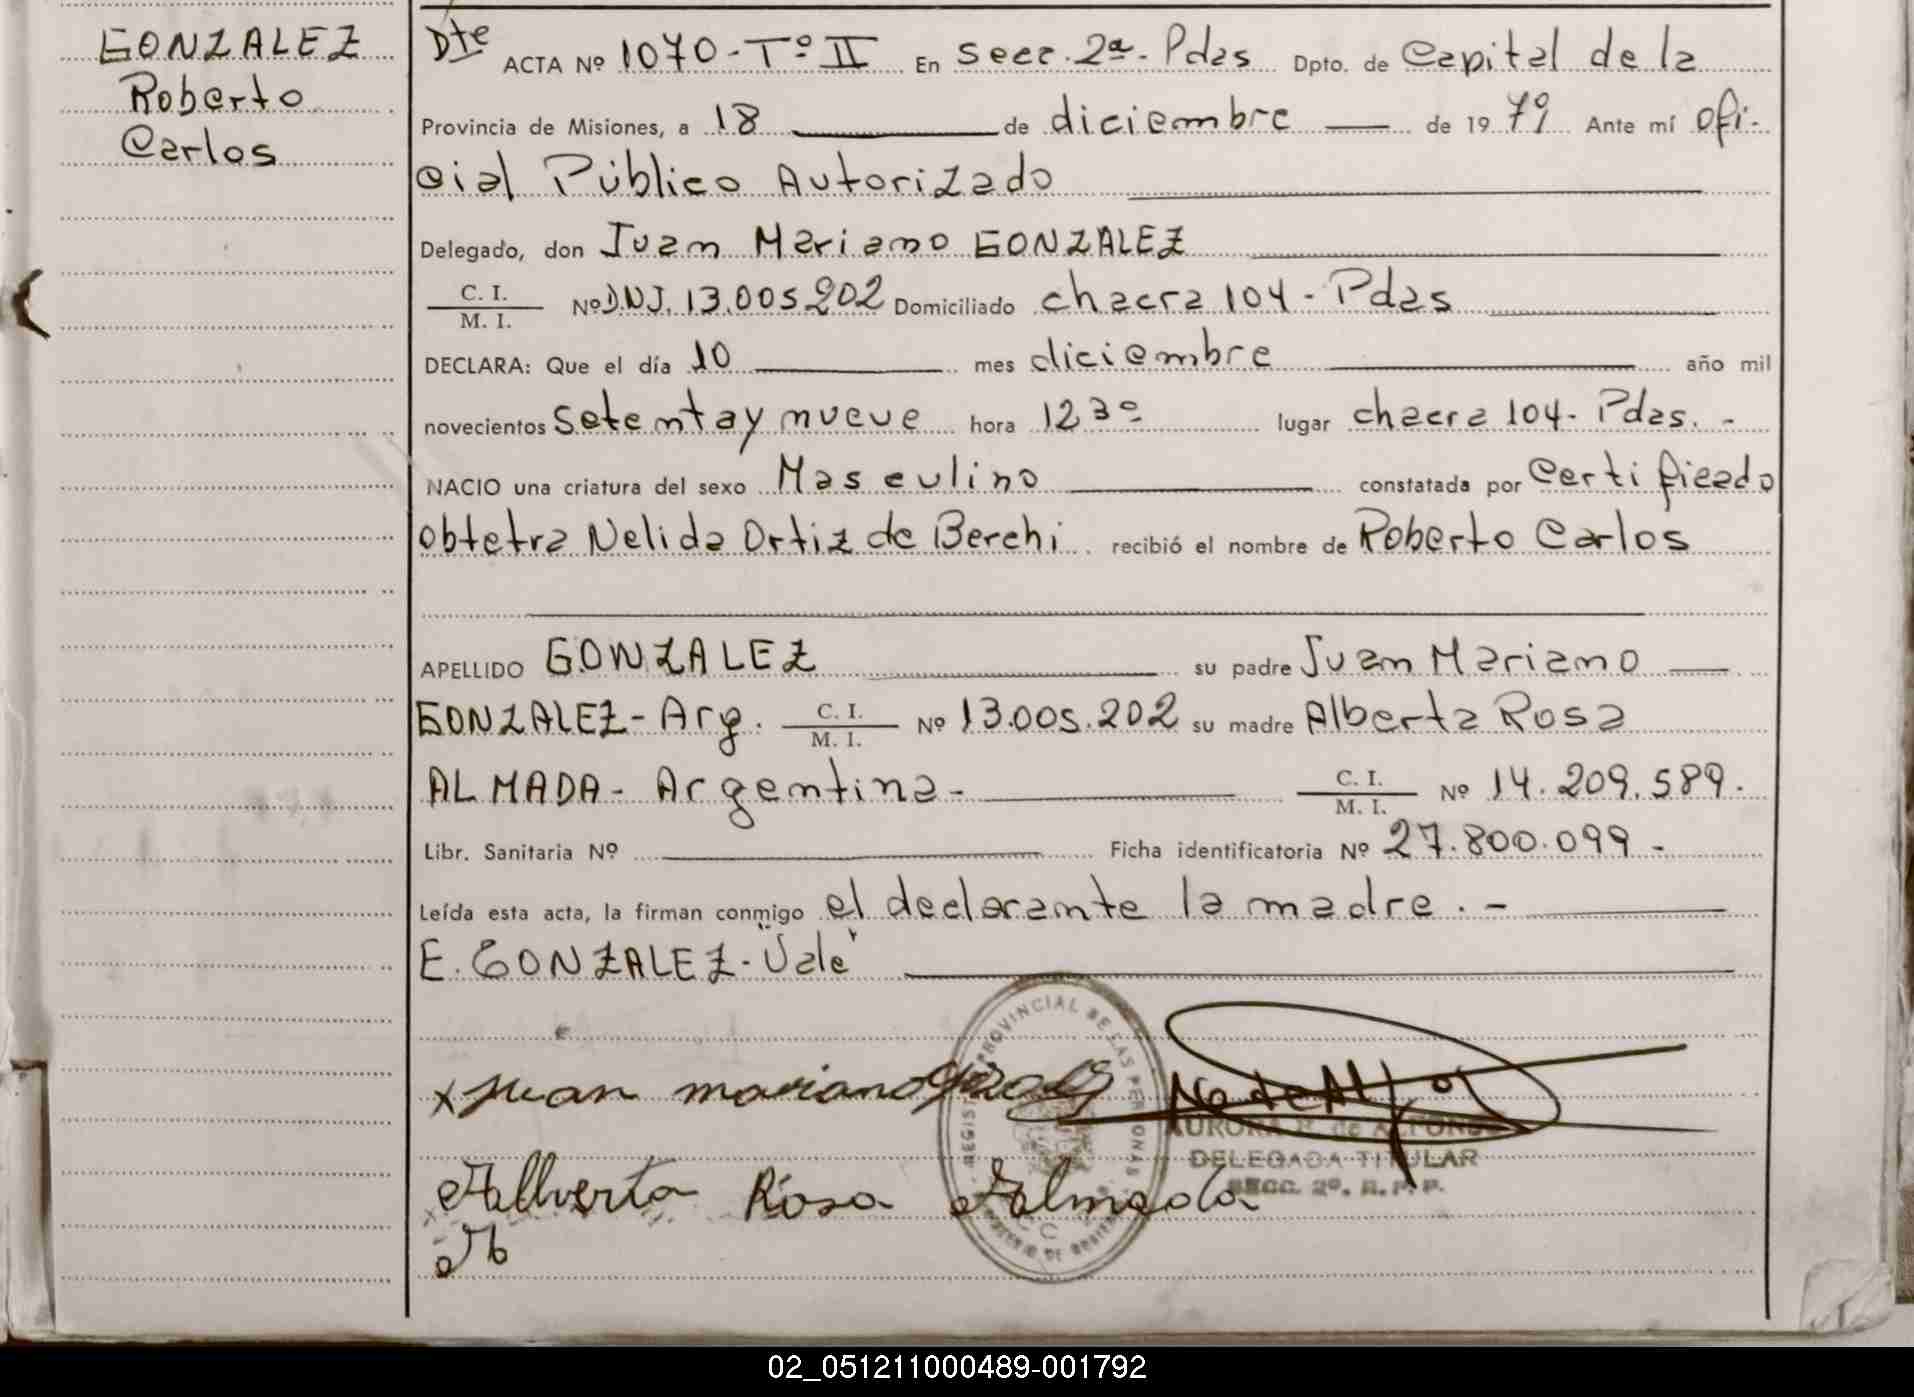 GONZALEZ
Roberto
Carlos
Dte ACTA Nº 1070-Tº II En Secc. 2ª- Pdas Dpto. de Capital de la
Provincia de Misiones, a 18 de diciembre de 19 79 Ante mí ofi-
cial Público Autorizado
Delegado, don Juan Mariano GONZALEZ
C. I.
M. I. Nº D.N.I. 13.005.202 Domiciliado chacra 104 - Pdas
DECLARA: Que el día 10 mes diciembre año mil
novecientos setenta y nueve hora 12 30 lugar chacra 104- Pdas. -
NACIO una criatura del sexo Masculino constatada por Certificado
obtetra Nelida Ortiz de Berchi recibió el nombre de Roberto Carlos
APELLIDO GONZALEZ su padre Juan Mariano
GONZALEZ-Arg. C. I. M. I. Nº 13.005.202 su madre Alberta Rosa
ALMADA- Argentina- C. I. M. I. Nº 14.209.589.
Libr. Sanitaria Nº Ficha identificatoria Nº 27.800.099 -
Leída esta acta, la firman conmigo el declarante la madre. -
E. GONZALEZ-"Vale"
x Juan mariano
Alberta Rosa Almada
REGISTRO PROVINCIAL DE LAS PERSONAS
AURORA de ALFONSO
DELEGADA TITULAR
SECC. 2ª. R. P. P.
02_051211000489-001792